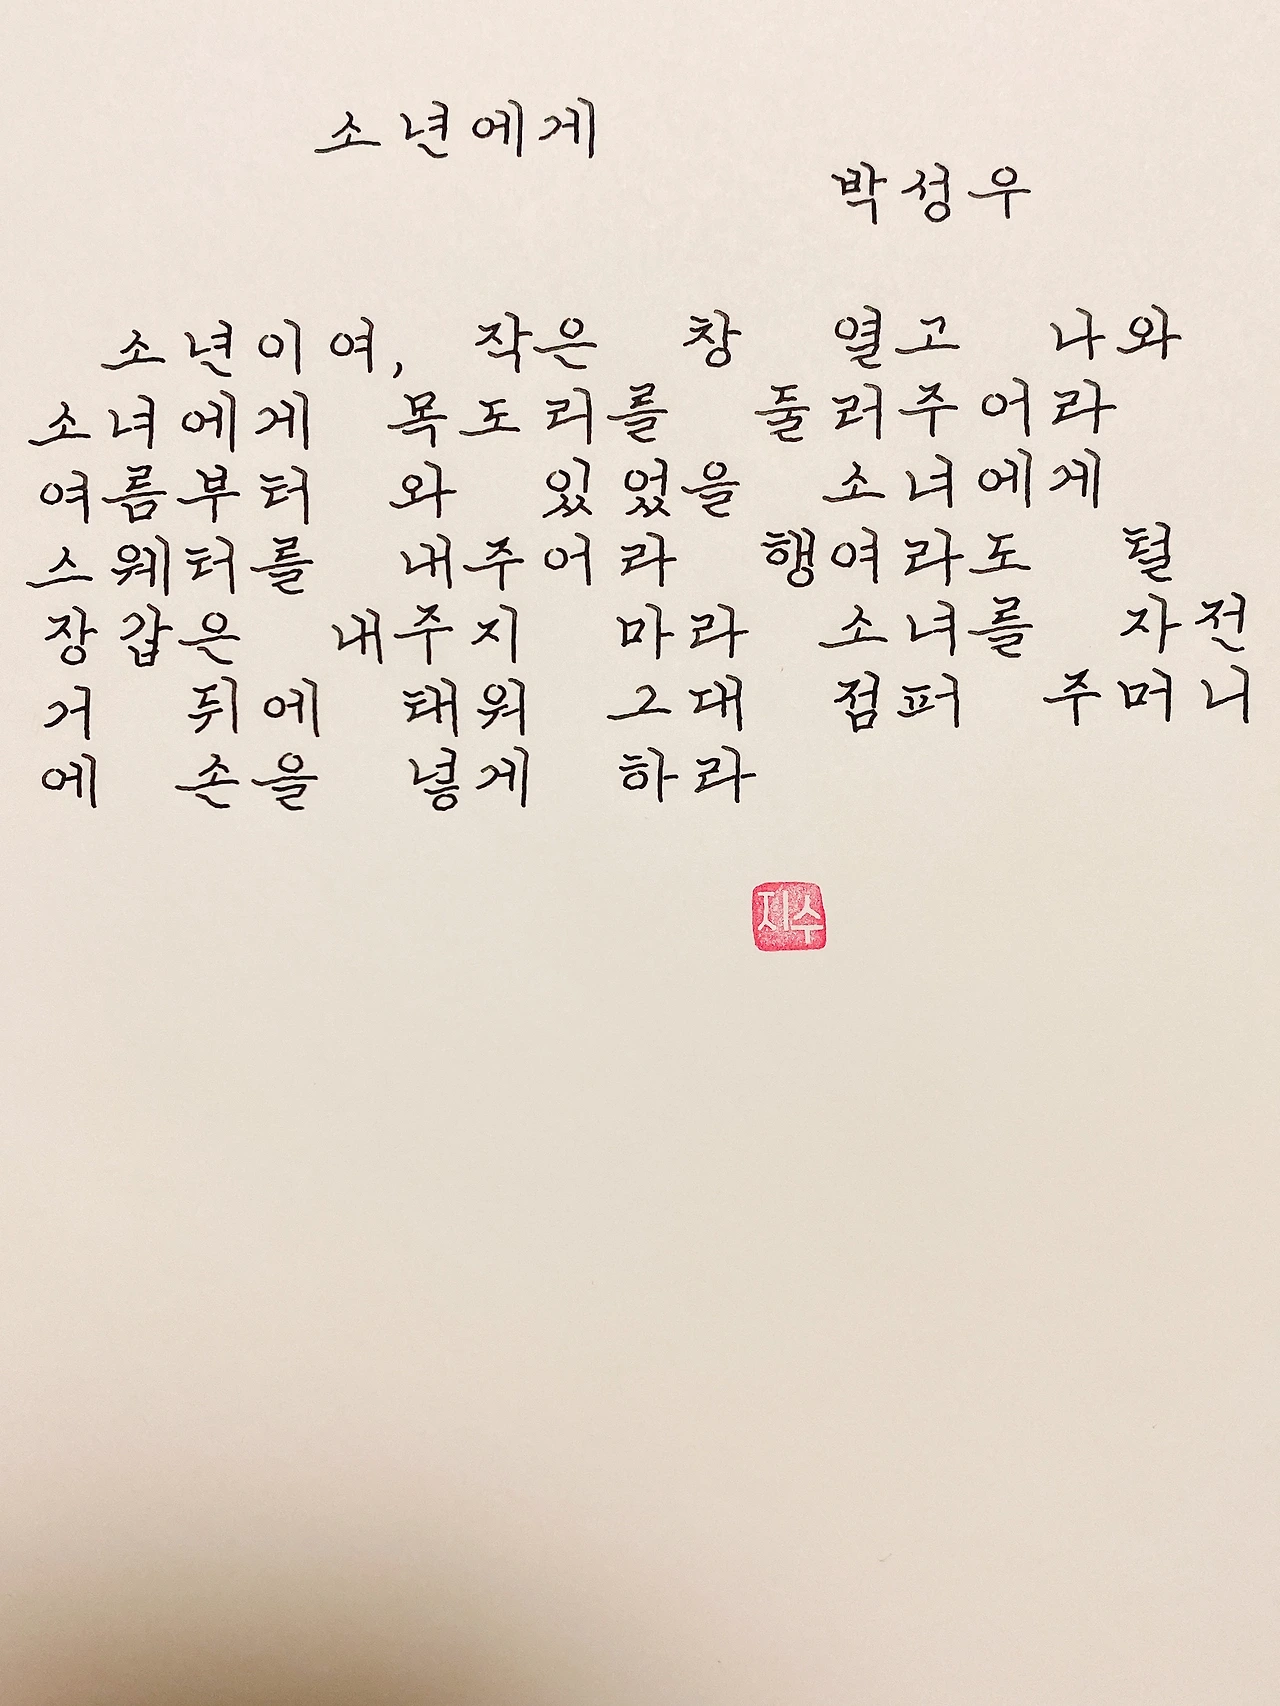 소년에게
박성우
소년이여, 작은 창 열고 나와
소녀에게 목도리를 둘러주어라
여름부터 와 있었을 소녀에게
스웨터를 내주어라 행여라도 털
장갑은 내주지 마라 소녀를 자전
거 뒤에 태워 그대 점퍼 주머니
에 손을 넣게 하라
지수